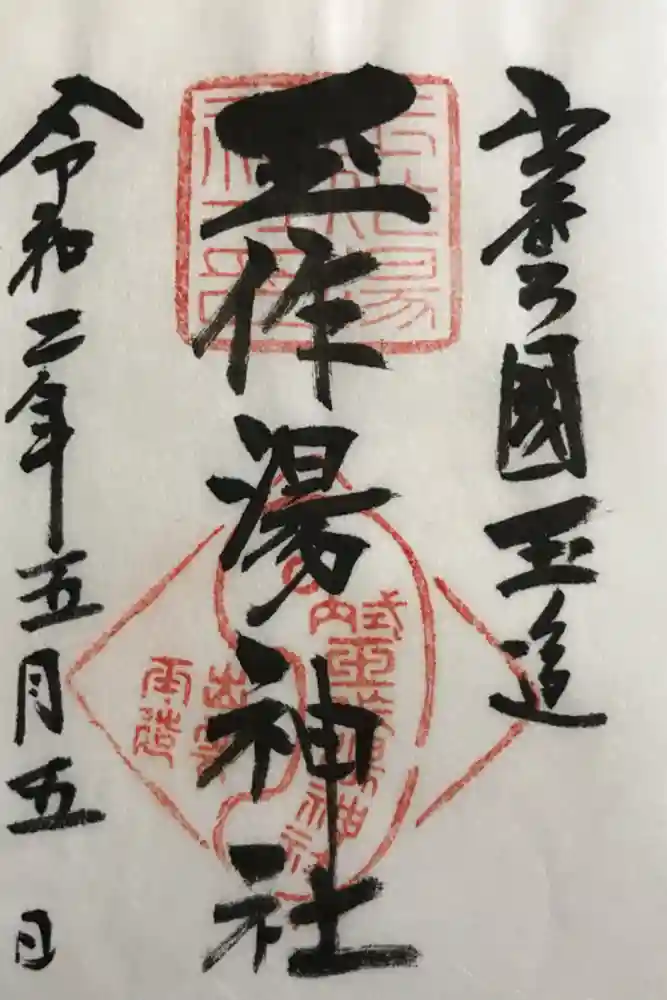 出雲国玉造
玉作湯神社
令和二年五月五日
式内
玉作湯神社
出雲
玉造